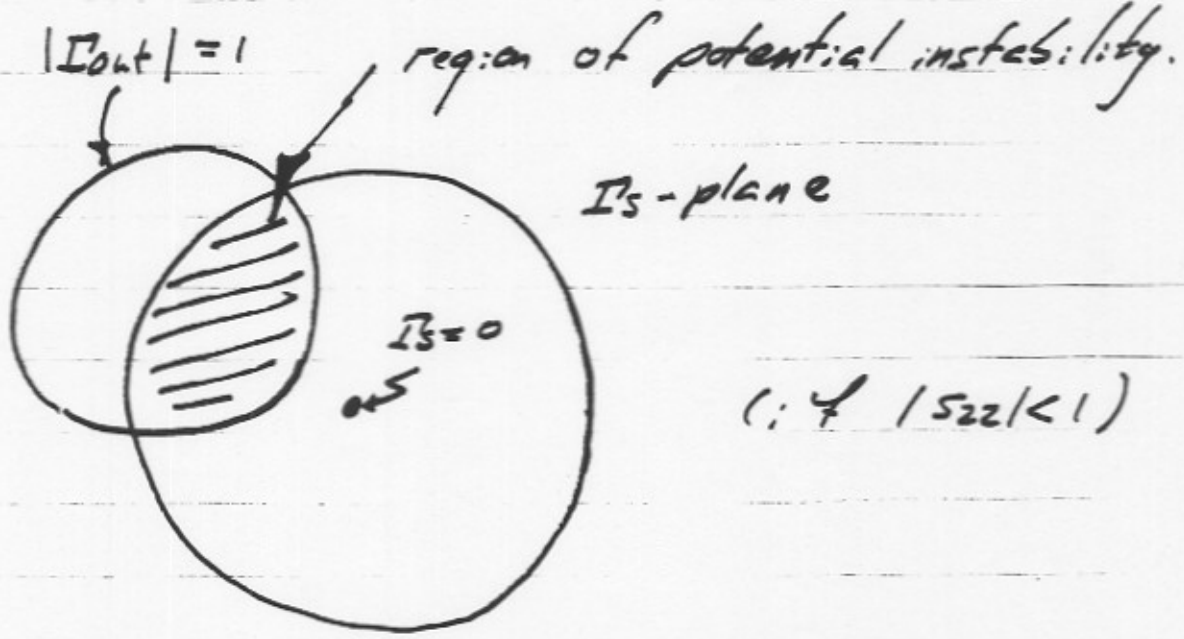 |Γout| = 1
region of potential instability.
Γs-plane
Γs=0
(if |S22|<1)